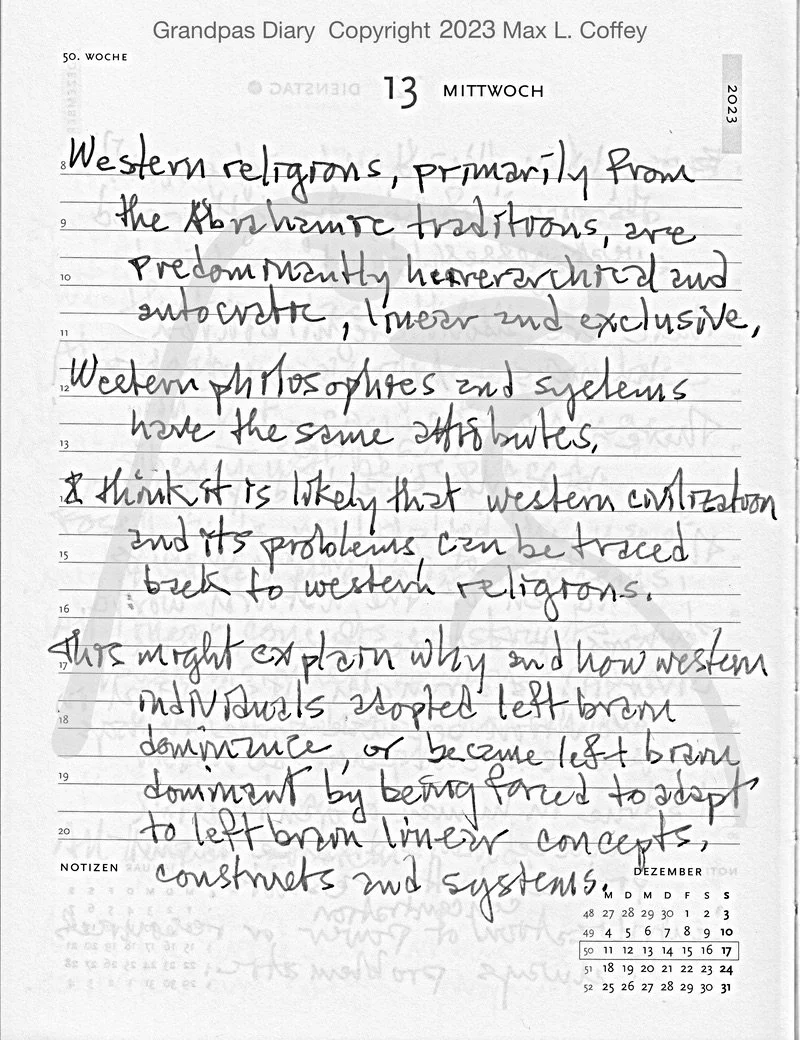 Grandpas Diary Copyright 2023 Max L. Coffey
50. WOCHE
13 MITTWOCH
2023
8 Western religions, primarily from
9 the Abrahamic traditions, are
10 predominantly heirerarchical and
autocratic, linear and exclusive,
11
12 Western philosophies and systems
13 have the same attributes.
I think it is likely that western civilization
15 and its problems, can be traced
16 back to western religions.
17 This might explain why and how western
18 individuals adopted left brain
dominance, or became left brain
19 dominant by being forced to adapt
20 to left brain linear concepts,
NOTIZEN
constructs and systems.
DEZEMBER
M D M D F S S
48 27 28 29 30 1 2 3
49 4 5 6 7 8 9 10
50 11 12 13 14 15 16 17
51 18 19 20 21 22 23 24
52 25 26 27 28 29 30 31